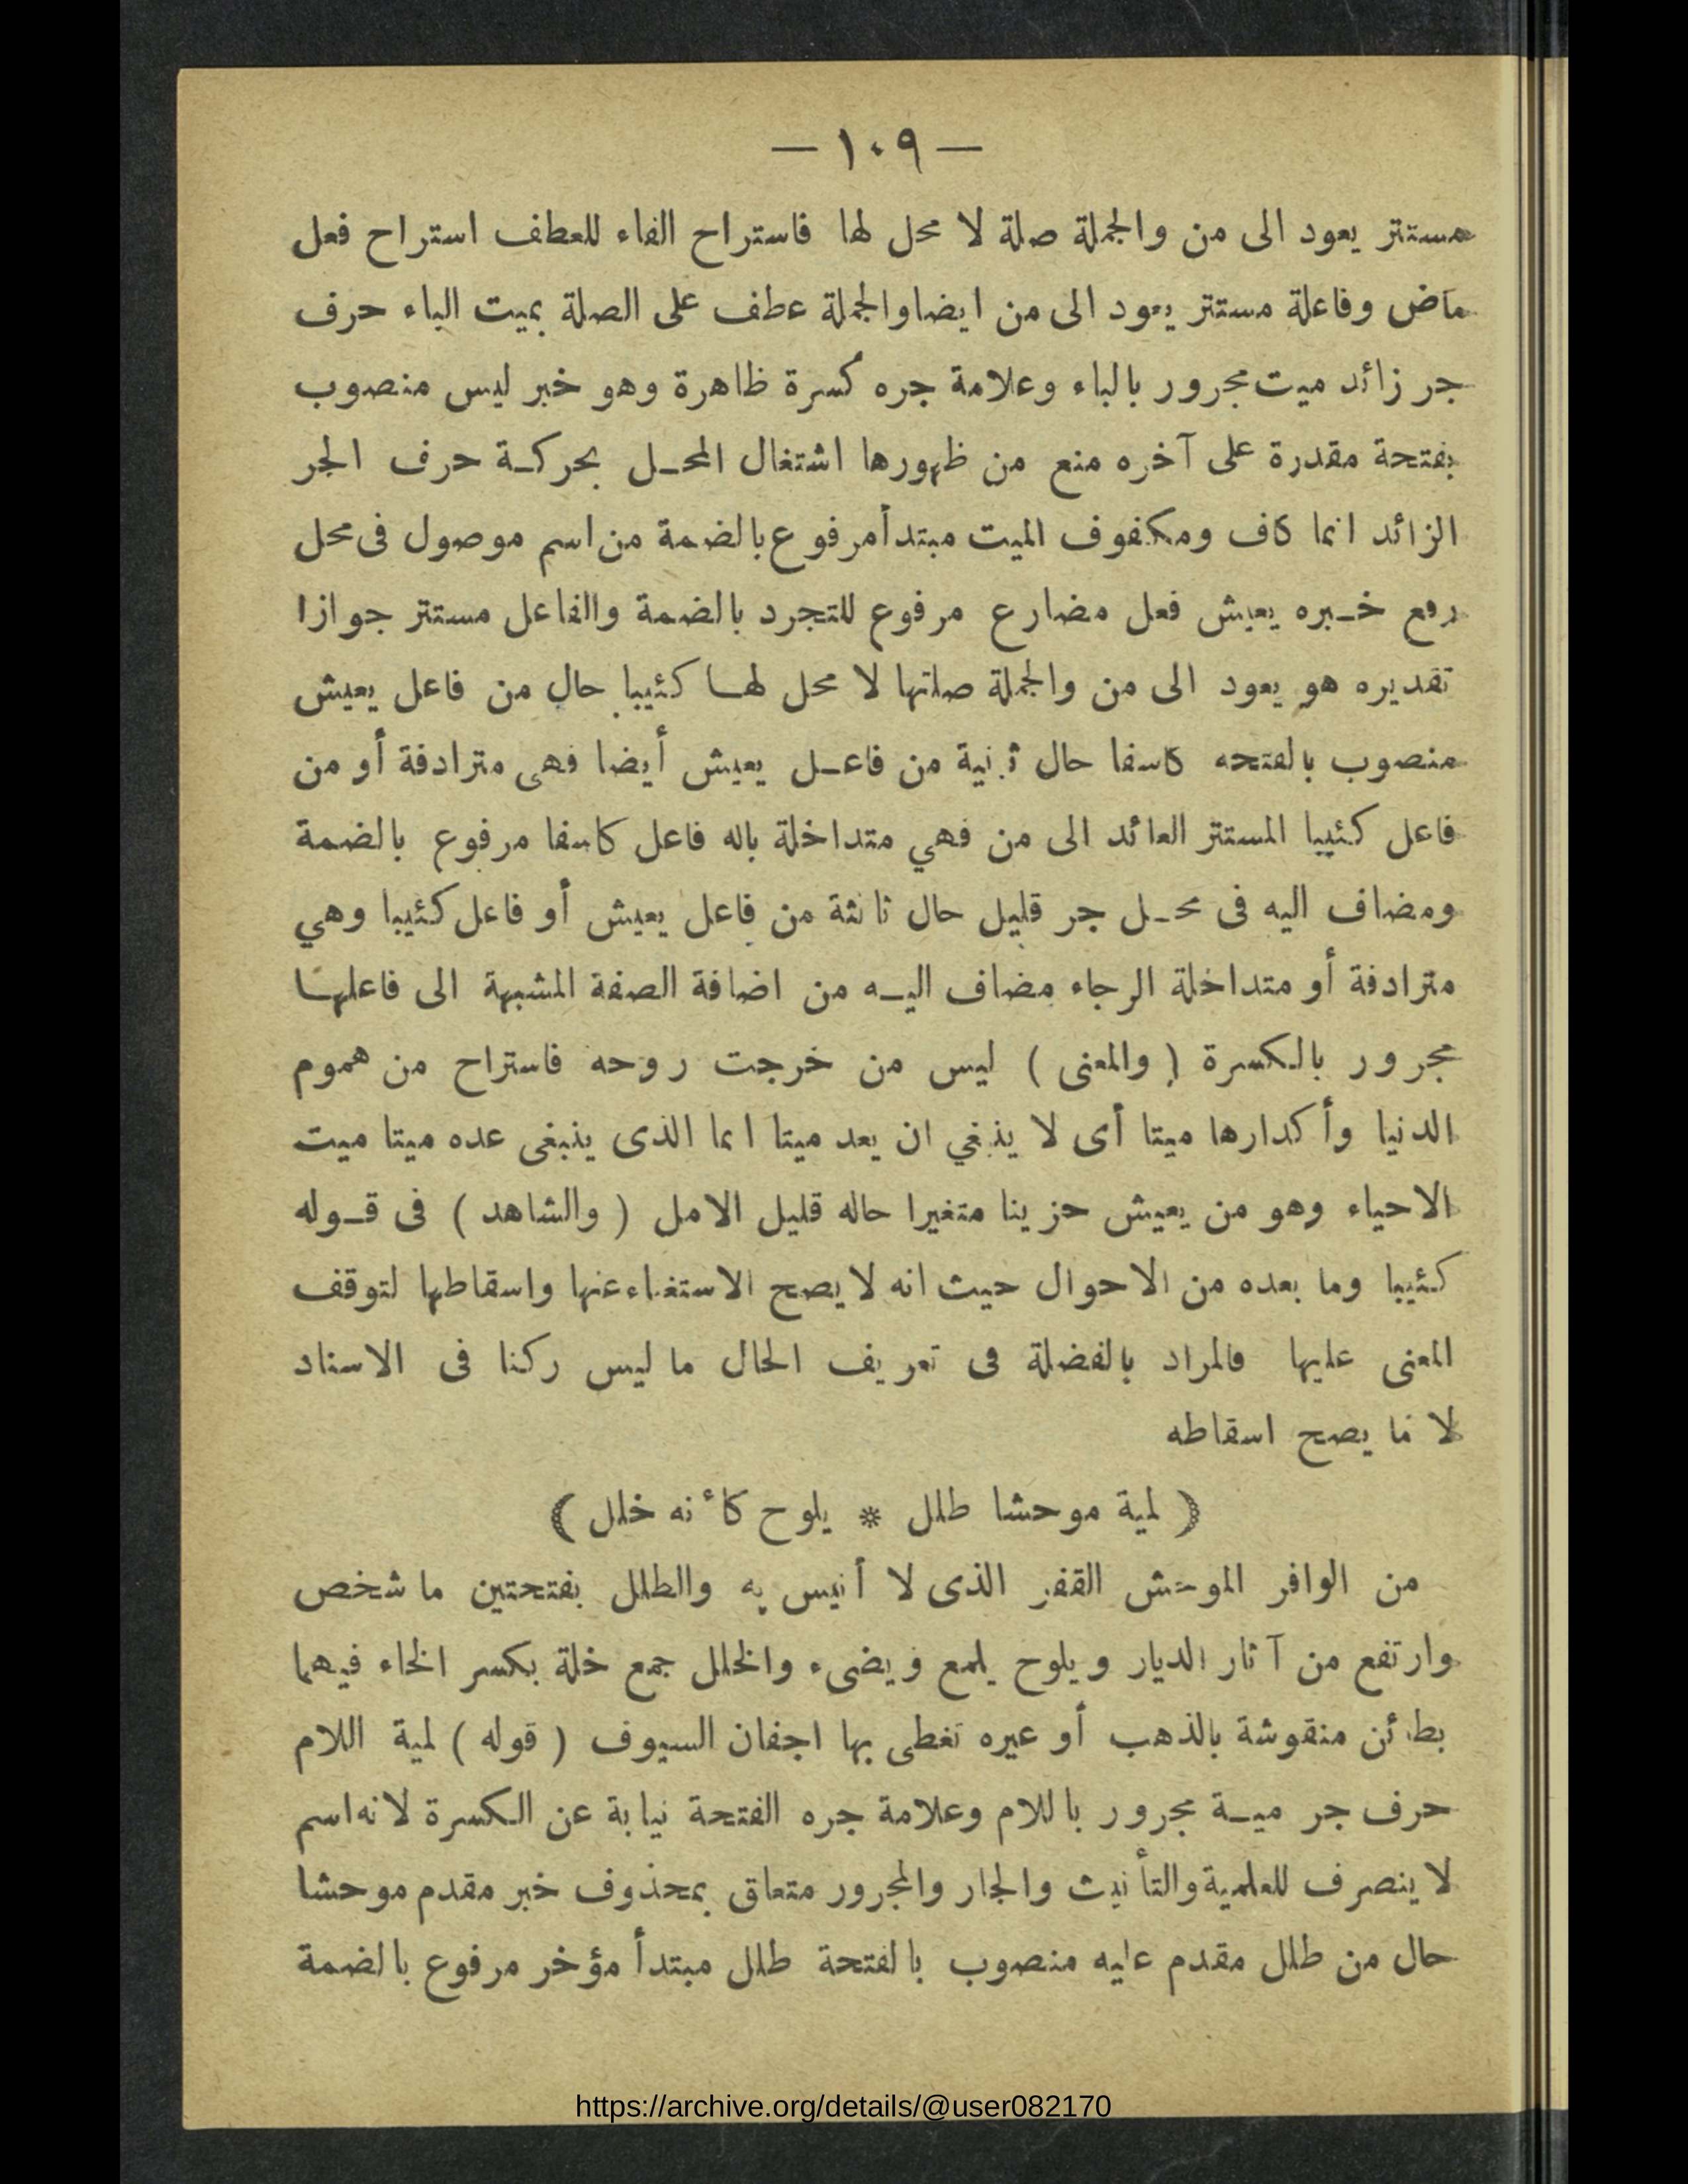 — ١٠٩ —
مستتر يعود الى من والجملة صلة لا محل لها فاستراح الفاء للعطف استراح فعل
ماض وفاعلة مستتر يعود الى من ايضا والجملة عطف على الصلة بميت الباء حرف
جر زائد ميت مجرور بالباء وعلامة جره كسرة ظاهرة وهو خبر ليس منصوب
بفتحة مقدرة على آخره منع من ظهورها اشتغال المحـل بحركـة حرف الجر
الزائد انما كاف ومكفوف الميت مبتدأ مرفوع بالضمة من اسم موصول فى محل
رفع خـبره يعيش فعل مضارع مرفوع للتجرد بالضمة والفاعل مستتر جوازا
تقديره هو يعود الى من والجملة صلتها لا محل لهـا كئيبا حال من فاعل يعيش
منصوب بالفتحه كاسفا حال ثانية من فاعـل يعيش أيضا فهى مترادفة أو من
فاعل كئيبا المستتر العائد الى من فهي متداخلة باله فاعل كاسفا مرفوع بالضمة
ومضاف اليه فى محـل جر قليل حال ثالثة من فاعل يعيش أو فاعل كئيبا وهي
مترادفة أو متداخلة الرجاء مضاف اليـه من اضافة الصفة المشبهة الى فاعلهـا
مجرور بالكسرة ( والمعنى ) ليس من خرجت روحه فاستراح من هموم
الدنيا وأكدارها ميتا أى لا ينبغي ان يعد ميتا انما الذى ينبغى عده ميتا ميت
الاحياء وهو من يعيش حزينا متغيرا حاله قليل الامل ( والشاهد ) فى قـوله
كئيبا وما بعده من الاحوال حيث انه لا يصح الاستغناء عنها واسقاطها لتوقف
المعنى عليها فالمراد بالفضلة فى تعريف الحال ما ليس ركنا فى الاسناد
لا ما يصح اسقاطه
( لمية موحشا طلل * يلوح كأنه خلل )
من الوافر الموحش القفر الذى لا أنيس به والطلل بفتحتين ما شخص
وارتفع من آثار الديار ويلوح يلمع ويضىء والخلل جمع خلة بكسر الخاء فيهما
بطائن منقوشة بالذهب أو غيره تغطى بها اجفان السيوف ( قوله ) لمية اللام
حرف جر ميـة مجرور باللام وعلامة جره الفتحة نيابة عن الكسرة لانه اسم
لا ينصرف للعلمية والتأنيث والجار والمجرور متعلق بمحذوف خبر مقدم موحشا
حال من طلل مقدم عليه منصوب بالفتحة طلل مبتدأ مؤخر مرفوع بالضمة
https://archive.org/details/@user082170